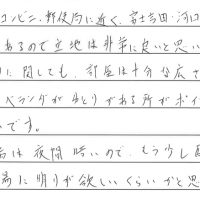 コンビニ、郵便局に近く、富士吉田・河口
あるので立地は非常に良いと思い
に関しても、計画は十分な広さ
ベランダがゆとりがある所がポイ
いです。
は夜間暗いので、もう少し
場に明りが欲しいくらいかと思